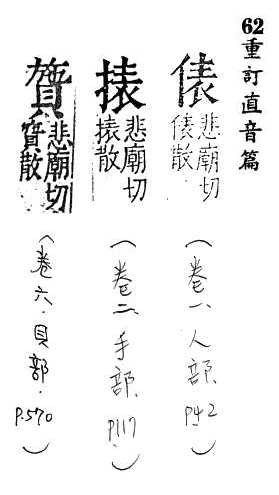 62重訂直音篇
俵
悲廟切
俵散
(卷一·人部.P42)
悲廟切
散
(卷二·手部.P117)
悲廟切
散
(卷六·貝部·P.570)